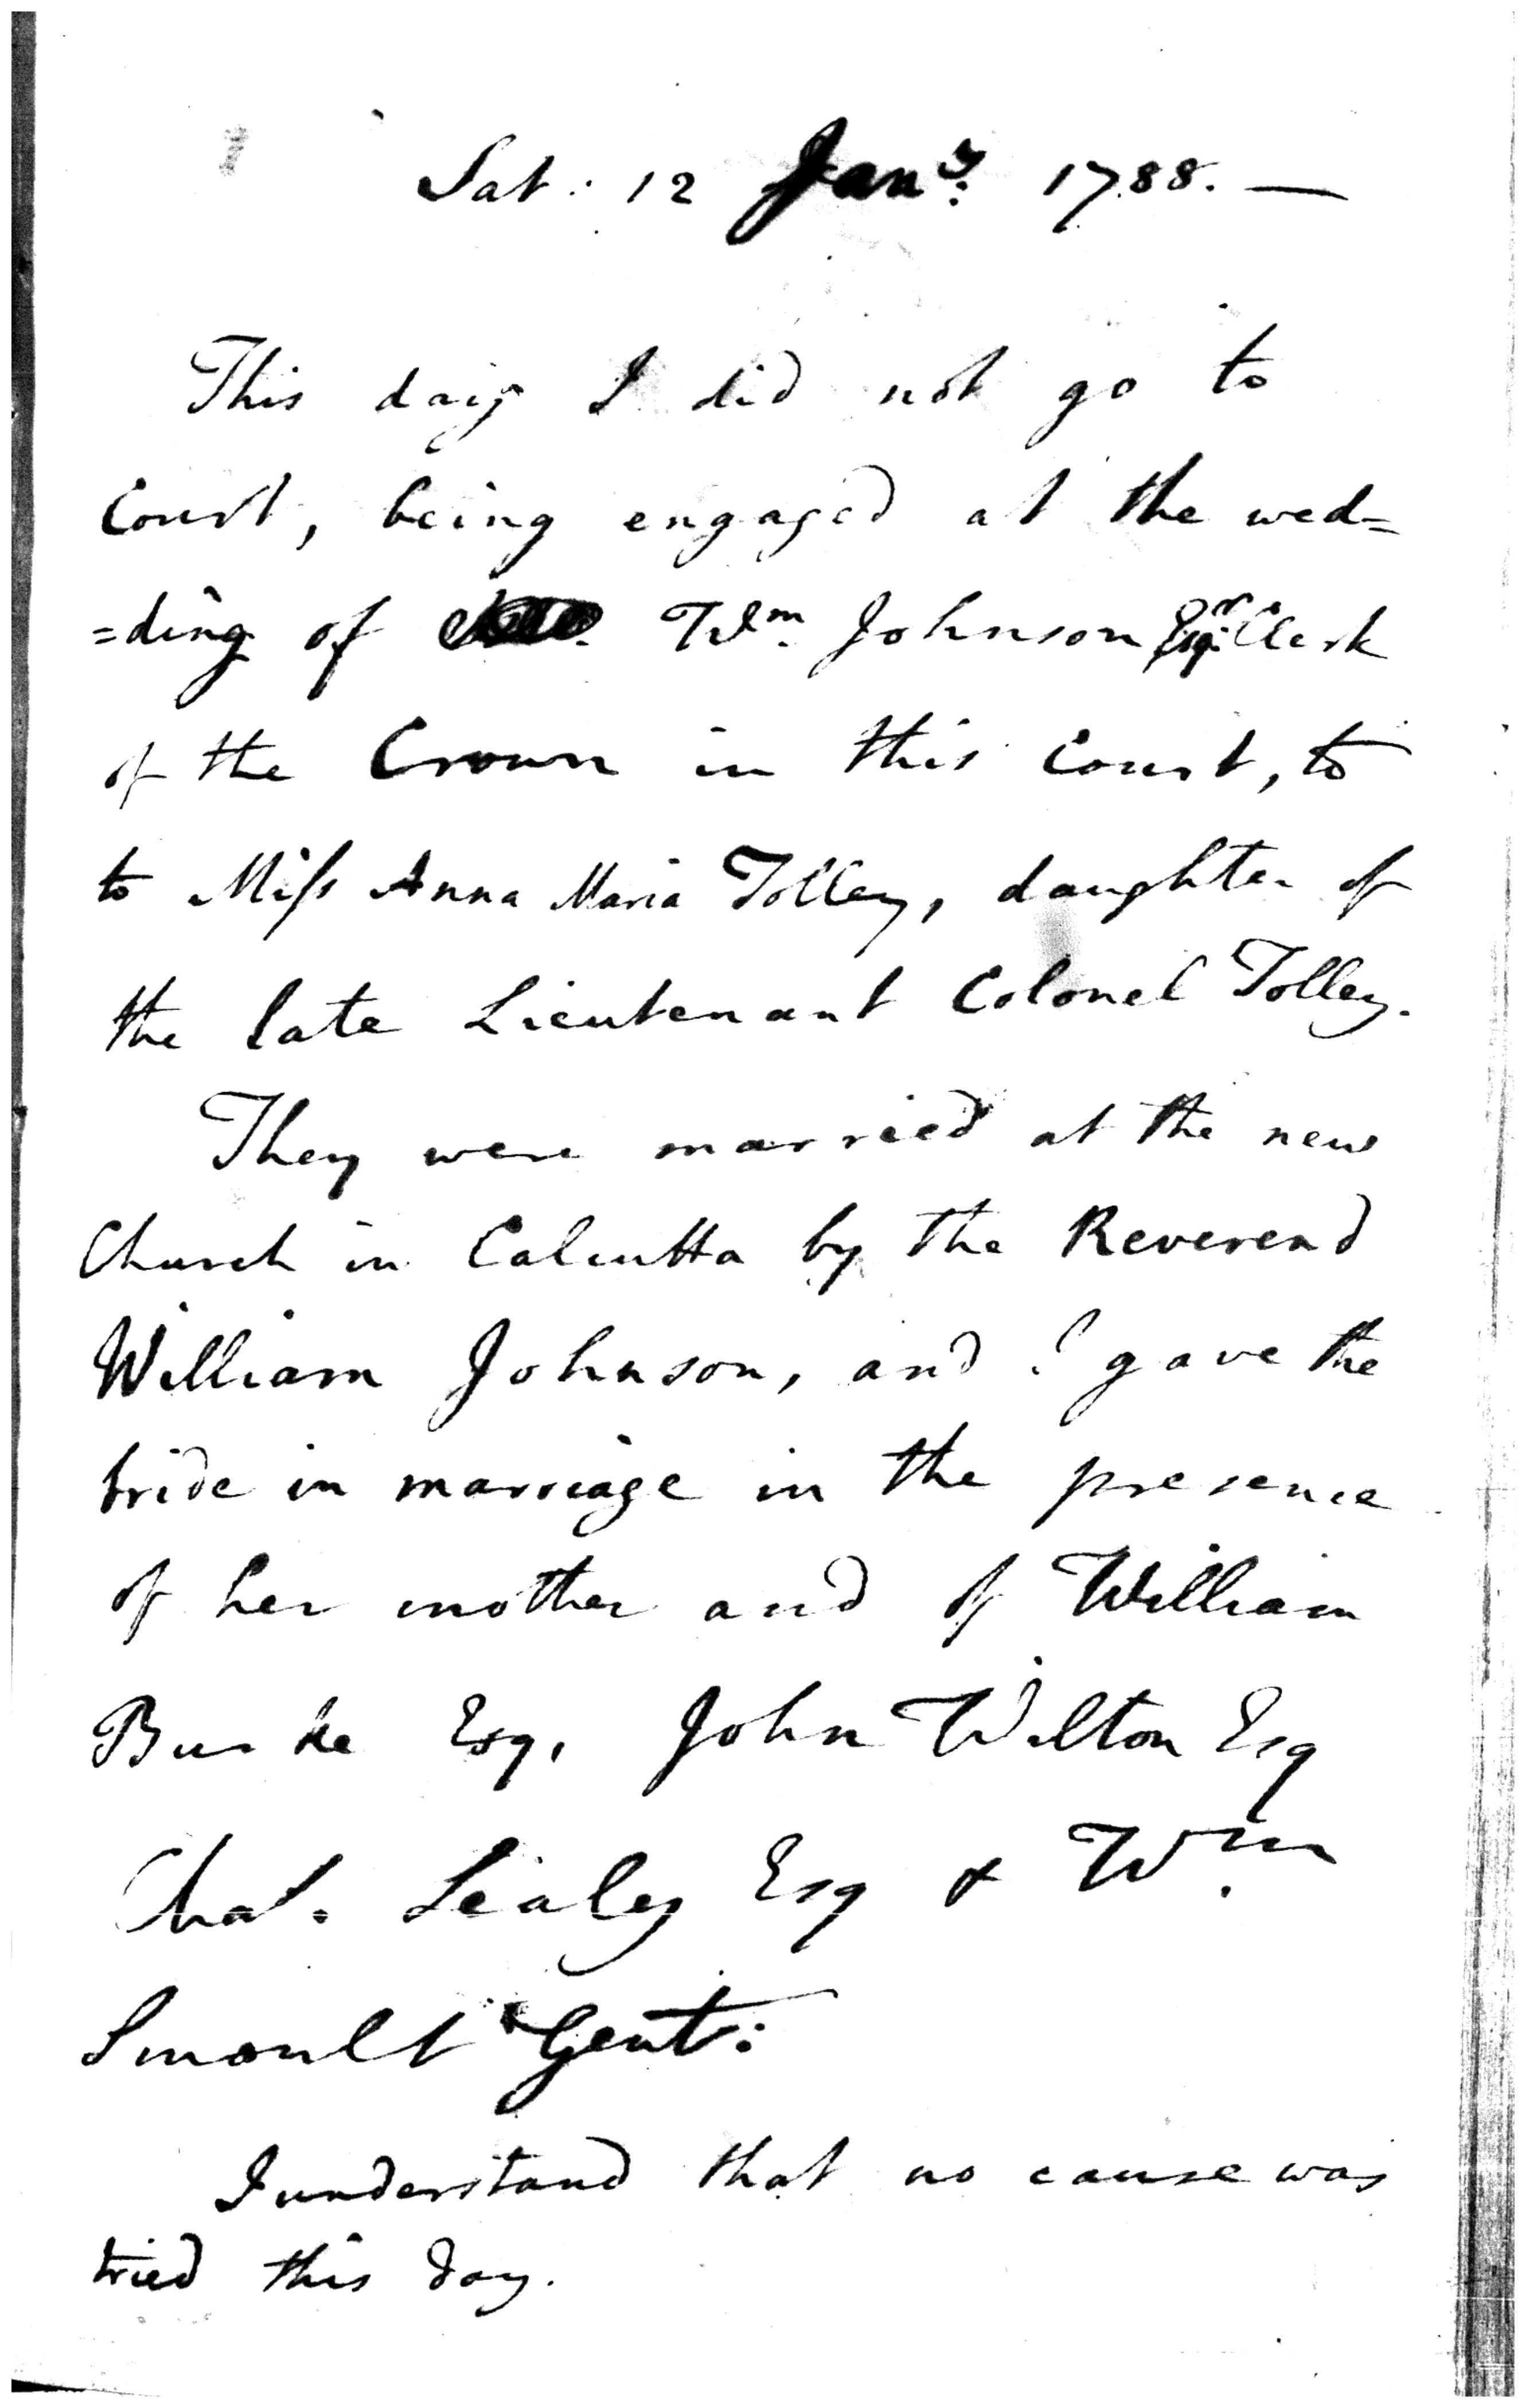 Sat: 12 Jany. 1788. —
This day I did not go to
Court, being engaged at the wed=
=ding of Wm. Johnson Esqr. Clerk
of the Crown in this Court, to
to Miss Anna Maria Tolley, daughter of
the late Lieutenant Colonel Tolley.
They were married at the new
Church in Calcutta by the Reverend
William Johnson, and I gave the
bride in marriage in the presence
of her mother and of William
Burke Esq, John Wilton Esq
Chas. Sealey Esq & Wm.
Smoult Gent:
I understand that no cause was
tried this day.